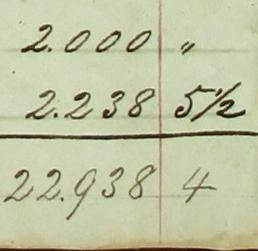 2.000 "
2.238 5½
22.938 4